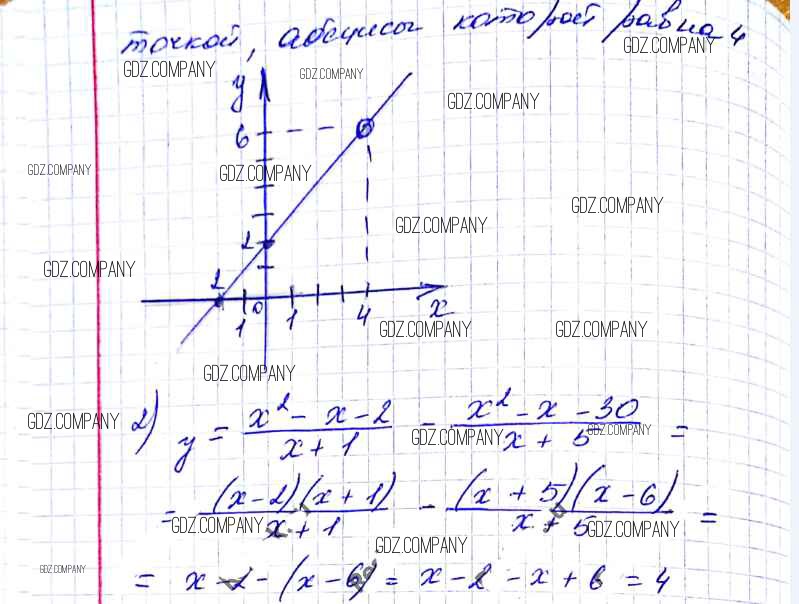 точкой, абсцисы которой равна 4
GDZ.COMPANY GDZ.COMPANY GDZ.COMPANY
y
GDZ.COMPANY
6
GDZ.COMPANY GDZ.COMPANY
GDZ.COMPANY
GDZ.COMPANY
2
GDZ.COMPANY
2
1 0 1 4 x
GDZ.COMPANY GDZ.COMPANY
GDZ.COMPANY
GDZ.COMPANY 2) y = (x² - x - 2)/(x + 1) - (x² - x - 30)/(x + 5) =
GDZ.COMPANY GDZ.COMPANY
= ((x-2)(x+1))/(x+1) - ((x+5)(x-6))/(x+5) =
GDZ.COMPANY GDZ.COMPANY
GDZ.COMPANY
GDZ.COMPANY = x-2-(x-6) = x-2-x+6 = 4